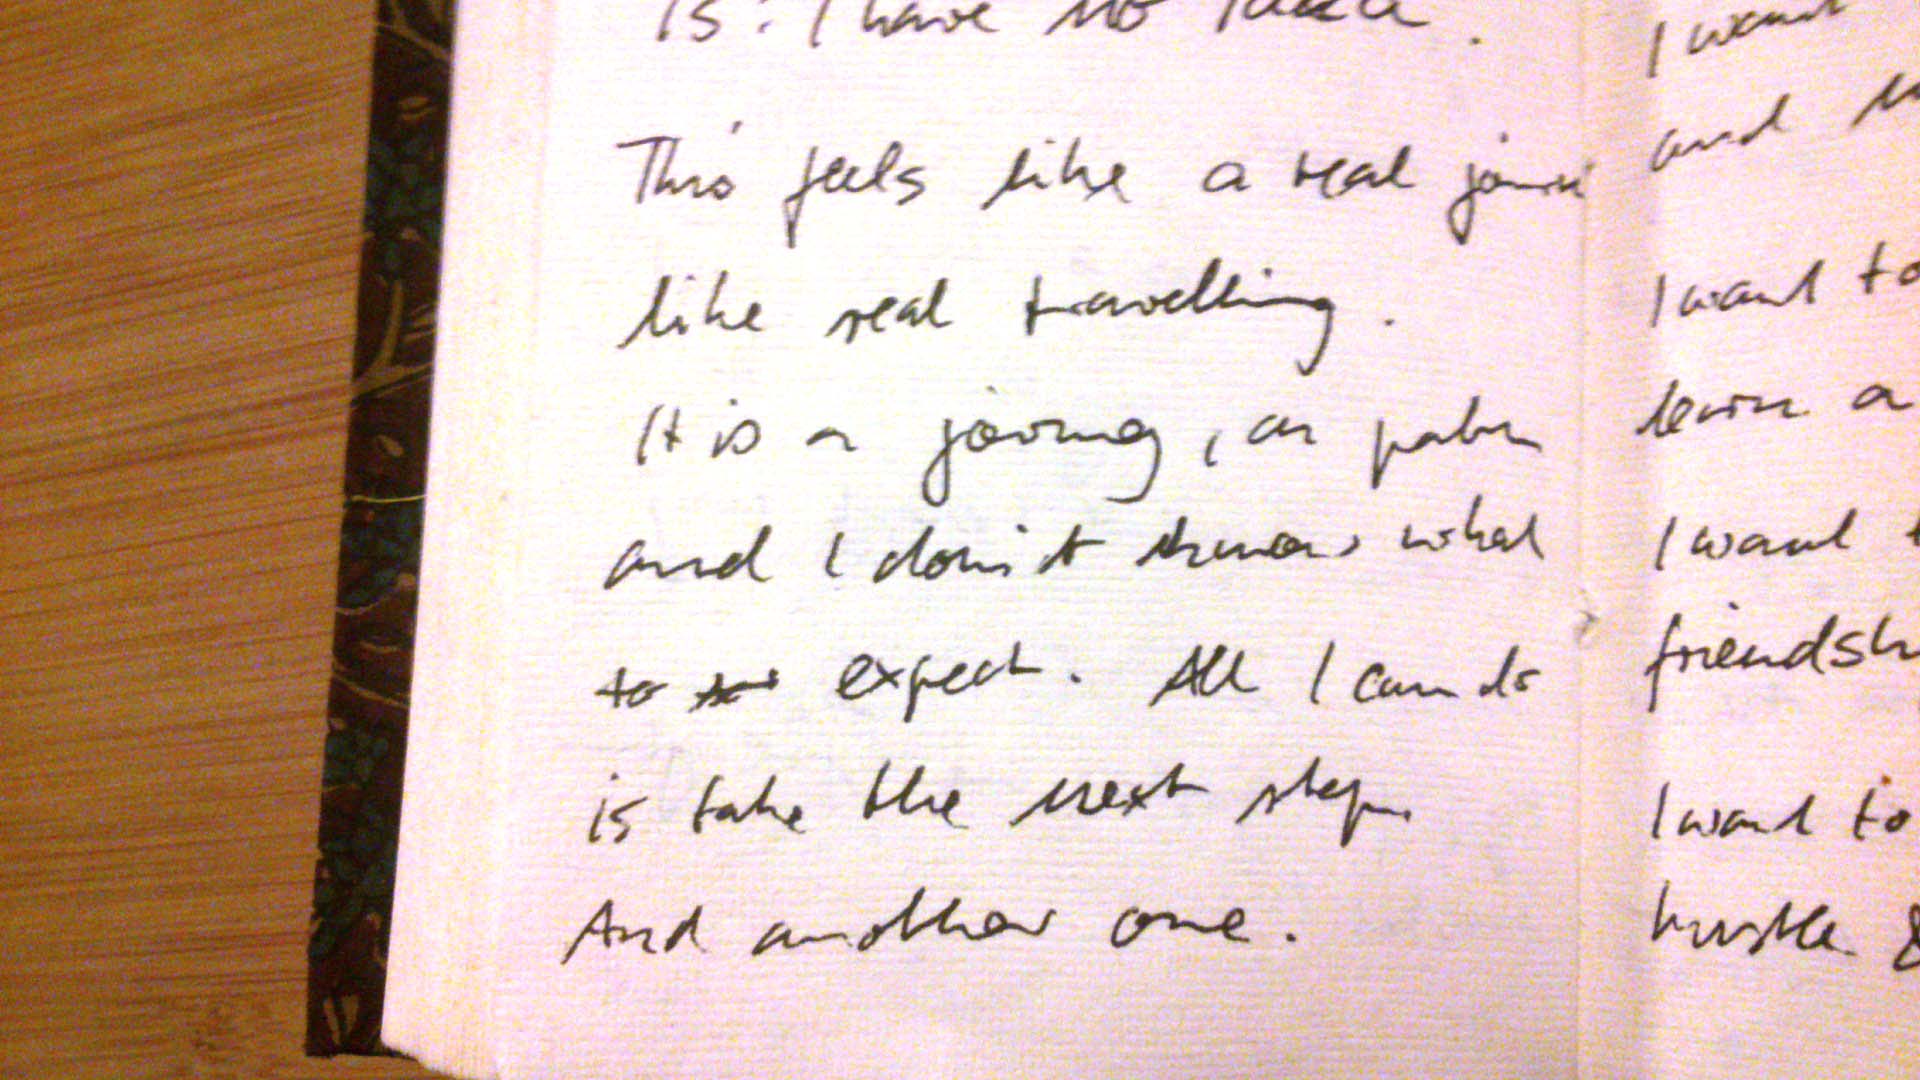 is: I have no idea.
This feels like a real
like real travelling.
It is a
and I don't know what
to expect. All I can do
is take the next step.
And another one.
I want
and
I want to
learn a
I want
I want to
hustle &